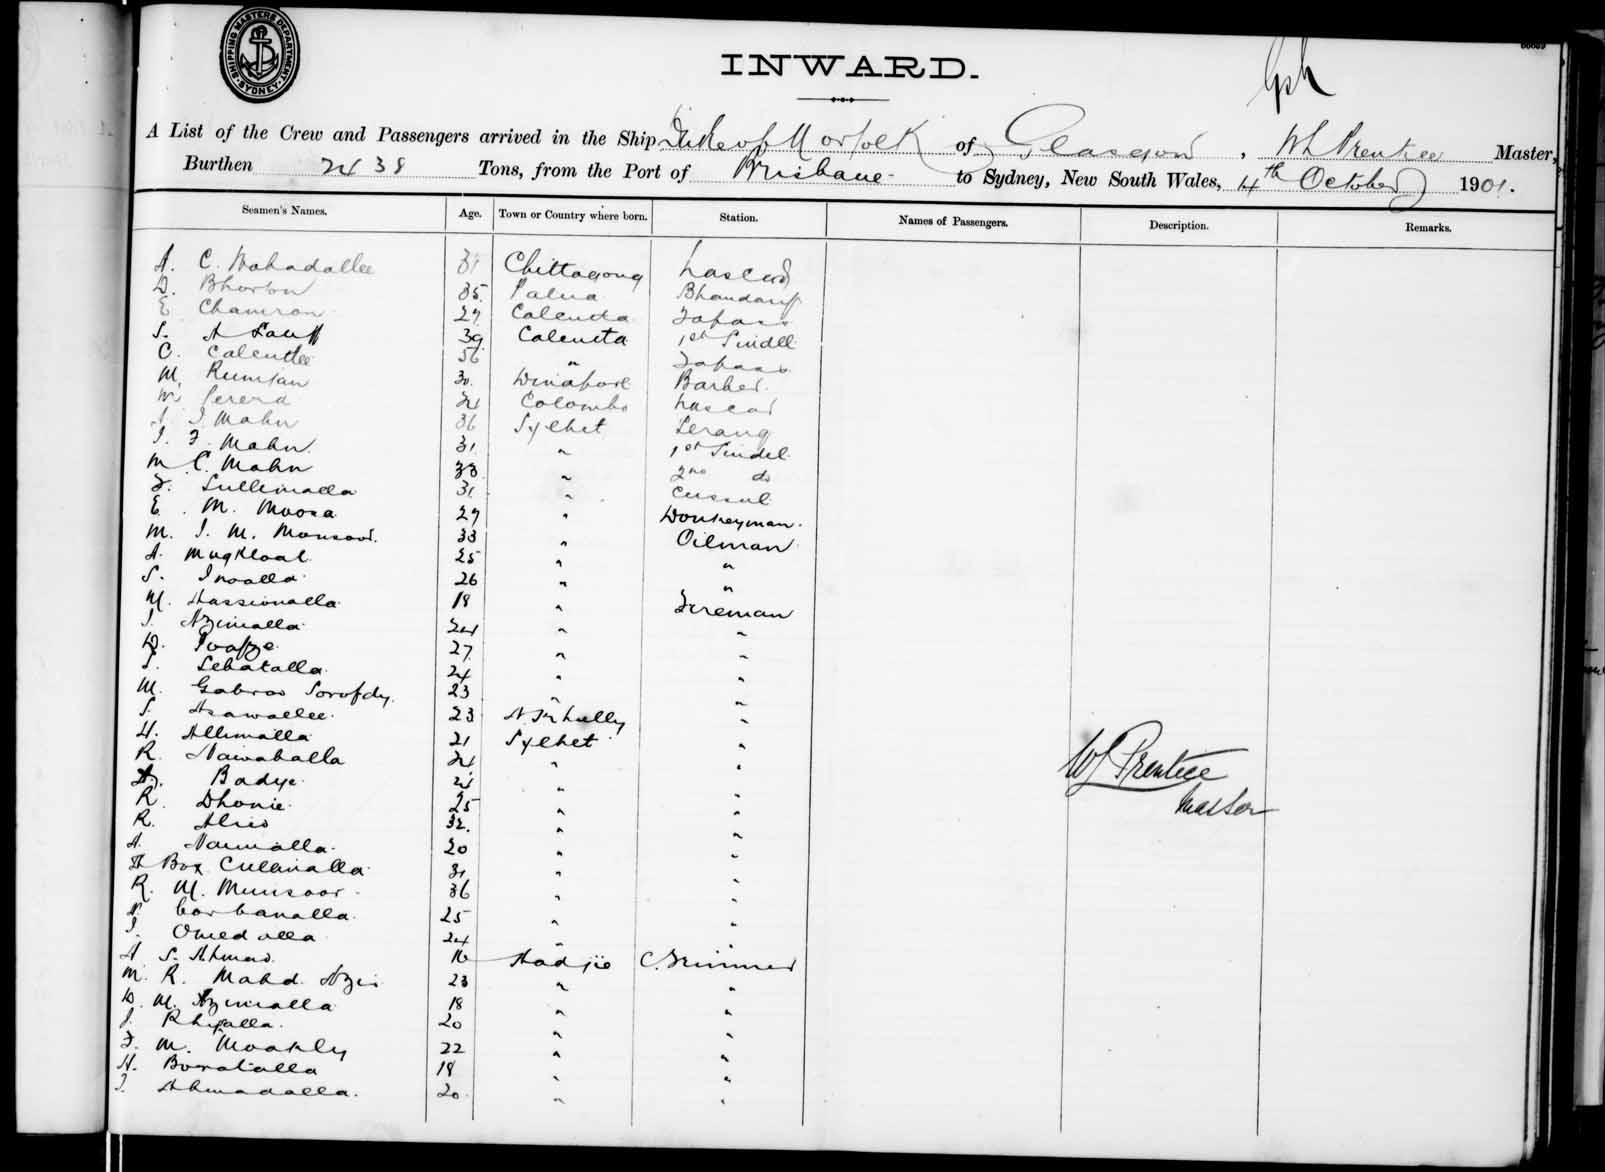 SHIPPING MASTERS DEPARTMENT SYDNEY
INWARD.
A List of the Crew and Passengers arrived in the Ship Duke of Norfolk of Glasgow, W L Prentice Master,
Burthen 2438 Tons, from the Port of Brisbane to Sydney, New South Wales, 4th October 1901.
Seamen's Names. Age. Town or Country where born. Station. Names of Passengers. Description. Remarks.
A. C. 31 Chittagong Lascar
D. 35 Bhandary
E Chamron 27 Calcutta Topass
S. A 39 Calcutta 1st Tindel
C. Calcuttee 56 " Topass
M. 30 Dinapore Barber
W. Perera 24 Colombo Lascar
J. Mahn 36 Sylhet Serang
J. F. Mahn 31 " 1st Tindel
M C. Mahn 33 " 2nd do
F. Sullimalla 31 " Cussul
E. M. Moosa 29 " Donkeyman.
M. I. M. Monsoor. 33 " Oilman
A. 25 " "
S. 26 " "
M. Hassionalla 18 " Fireman
I. Azimalla 24 " "
D. 27 " "
S. Sebatalla 24 " "
M. Gabroo 23 " "
S. Asawallee 23 "
H. Allimalla 21 Sylhet "
R. Nawaballa 24 " "
Badye 21 " "
R. Dhonie 25 " "
R. 32. " "
A. 20 " "
A Box Cullinalla 31 " "
R. M. Munsoor 36 " "
Corbanalla 25 " "
I. Omedalla 24 " "
A S. Ahmad 16 Hadjie C. Trimmer
M. R. Mahd. Azis 23 " "
D. M. Azimalla 18 " "
J. 20 " "
F. M. 22 " "
H. 18 " "
I. Ahmadalla. 20 " "
W L Prentice
Master